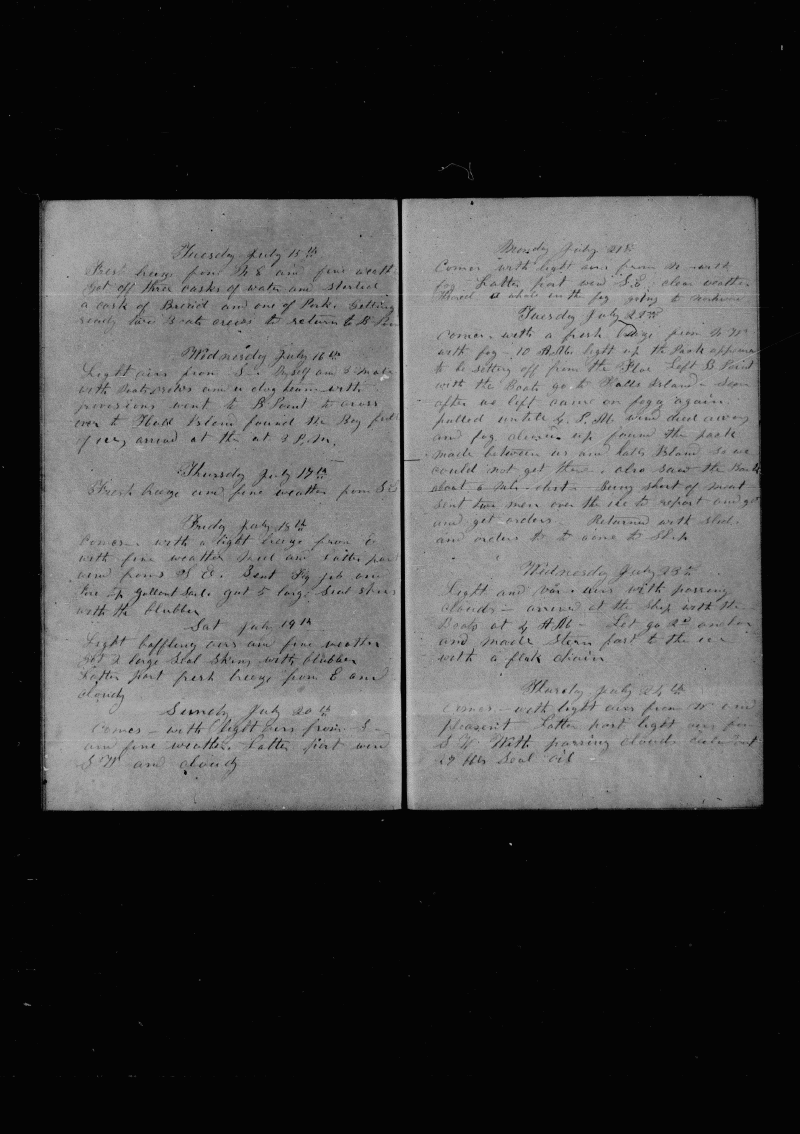 Tuesday July 15th
Fresh breeze from N E and fine weath
Got off three casks of water and started
a cask of Bread and one of Pork. Getting
ready two Boats crews to return to B Poin
Wednesday July 16th
Light airs from S - Myself and 3 mate
with boatsteerers and a dog team with
provisions went to B Point to cross
over to Halls Island found the Bay full
of ice, arrived at the at 3 P.M.
Thursday July 17th
Fresh breeze and fine weather from S E
Friday July 18th
Comes - with a light breeze from
with fine weather Mid and Latter part
wind from S E. Sent Fly jib and
Fore top Gallant Sails got 5 large Seal skins
with the blubber
Sat July 19th
Light baffling airs and fine weather
got 2 large Seal Skins with blubber
Latter part fresh breeze from E and
cloudy
Sunday July 20th
Comes - with light airs from S -
and fine weather. Latter part wind
S W and cloudy
Monday July 21st
Comes with light airs from with
fog Latter part wind S.E. clear weather
a whale in the fog going to
Tuesday July 22nd
Comes - with a fresh breeze from
with fog - 10 A.M. light up the Pack appeared
to be setting off from the Floe Left B Point
with the Boats go to Halls Island - Soon
after we left came on foggy again
pulled until 4 P.M. wind died away
and fog cleared up found the pack
made between us and Halls Island so we
could not get there, also saw the Bark
about a mile dist - Being short of meat
sent two men over the ice to report and get
and get orders. Returned with sled.
and orders to to come to Ship
Wednesday July 23th
Light and var. airs with passing
clouds - arrived at the ship with the
Boats at 4 A.M - Let go 2d anchor
and made Stern fast to the ice
with a fluke chain
Thursday July 24th
Comes - with light airs from W and
pleasent Latter part light airs from
S W With passing clouds
27 bbls Seal oil